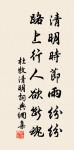 清明時節雨紛紛
路上行人欲斷魂
杜牧清明詞典網集